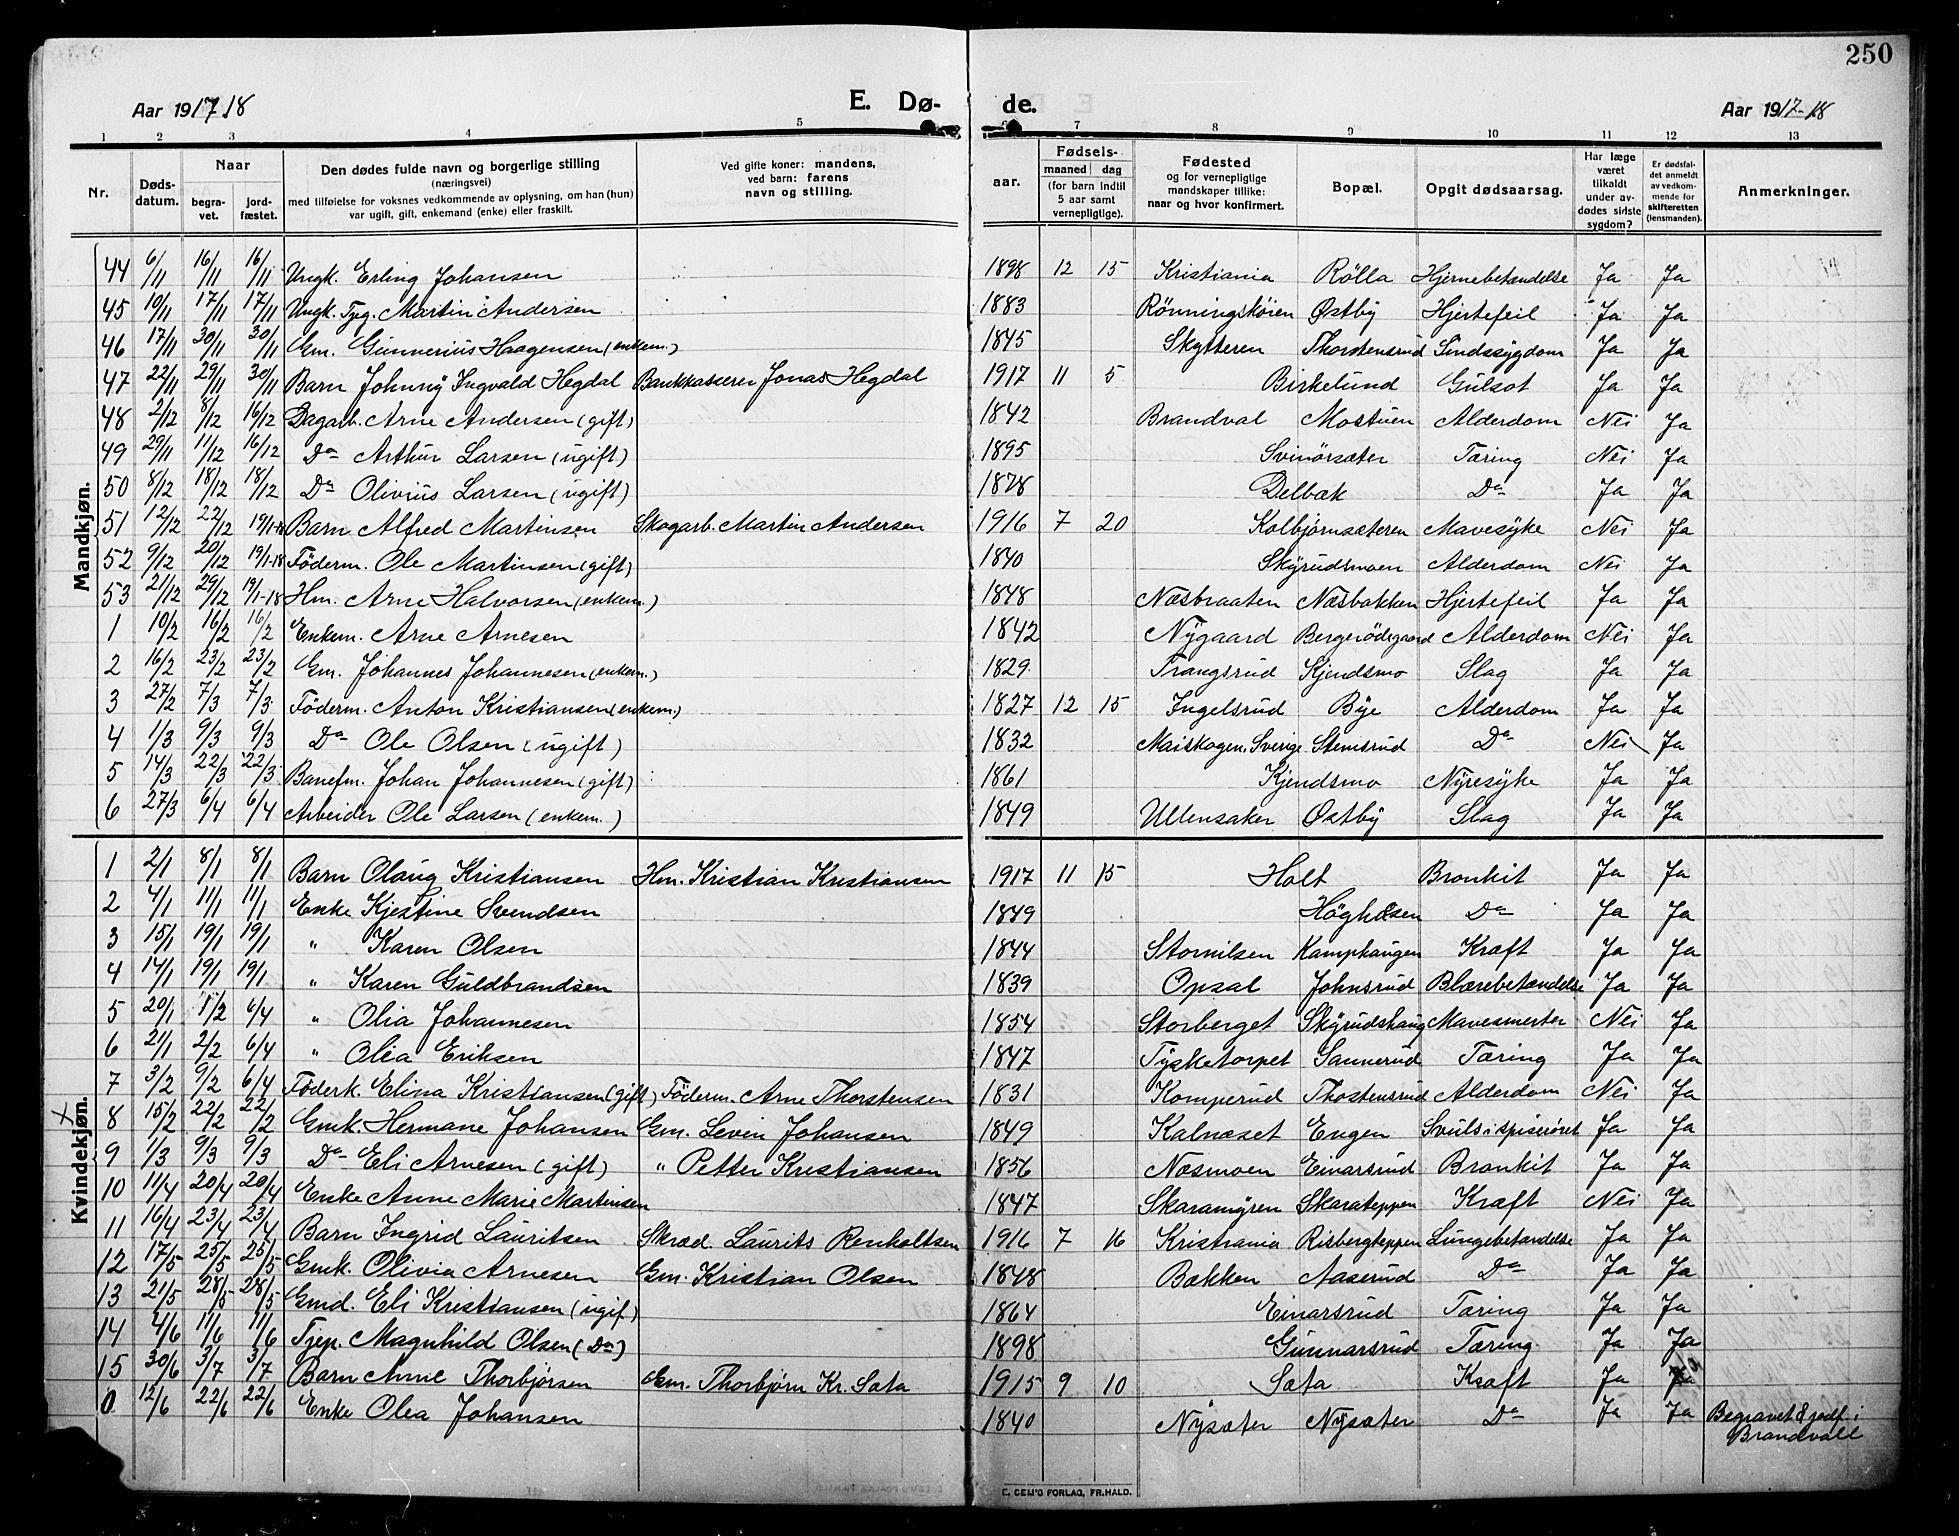 250
Aar 1917-18
E. Dø-
de.
Aar 1917-18
1 2 3 4 5 6 7 8 9 10 11 12 13
Nr.
Døds-datum.
Naar
begra-vet.
jord-fæstet.
Den dødes fulde navn og borgerlige stilling
(næringsvei)
med tilføielse for voksnes vedkommende av oplysning, om han (hun)
var ugift, gift, enkemand (enke) eller fraskilt.
Ved gifte koner: mandens,
ved barn: farens
navn og stilling.
Fødsels-
aar.
maaned dag
(for barn indtil
5 aar samt
vernepligtige).
Fødested
og for vernepligtige
mandskaper tillike:
naar og hvor konfirmert.
Bopæl.
Opgit dødsaarsag.
Har læge
været
tilkaldt
under av-
dødes sidste
sygdom?
Er dødsfal-
det anmeldt
av vedkom-
mende for
skifteretten
(lensmanden).
Anmerkninger.
Mandkjøn.
44 6/11 16/11 16/11 Ungk. Erling Johansen 1898 12 15 Kristiania Rölla Hjernebetændelse Ja Ja
45 10/11 17/11 17/11 Ungk. Tjeg. Martin Andersen 1883 Rönningsköien Østby Hjertefeil Ja Ja
46 17/11 30/11 30/11 Gm. Gunnerius Haagensen (enkem.) 1845 Skytteren Thorstensrud Sindssygdom Ja Ja
47 22/11 29/11 30/11 Barn Johnny Ingvald Hegdal Bankkasserer Jonas Hegdal 1917 11 5 Birkelund Gulsot Ja Ja
48 2/12 8/12 16/12 Dagarb. Arne Andersen (gift) 1842 Brandval Mostuen Alderdom Nei Ja
49 29/11 11/12 16/12 Do Arthur Larsen (ugift) 1895 Svinörsæter Tæring Nei Ja
50 8/12 18/12 18/12 Do Olivius Larsen (ugift) 1878 Delbæk Do Ja Ja
51 12/12 22/12 19/1-18 Barn Alfred Martinsen Skogarb. Martin Andersen 1916 7 20 Kolbjörnsæteren Mavesyke Nei Ja
52 9/12 20/12 19/1-18 Föderm. Ole Martinsen (gift) 1840 Skyrudsmoen Alderdom Nei Ja
53 21/12 29/12 19/1-18 Hm. Arne Halvorsen (enkem.) 1848 Næsbraaten Næsbakken Hjertefeil Ja Ja
1 10/2 16/2 16/2 Enkem. Arne Arnesen 1842 Nygaard Bergerödegaard Alderdom Nei Ja
2 16/2 23/2 23/2 Gm. Johannes Johannesen (enkem.) 1829 Trangsrud Kjendsmo Slag Ja Ja
3 27/2 7/3 7/3 Föderm. Anton Kristiansen (enkem.) 1827 12 15 Ingelsrud Bye Alderdom Ja Ja
4 1/3 9/3 9/3 Do Ole Olsen (ugift) 1832 Maiskogen, Sverige Stensrud Do Nei Ja
5 14/3 22/3 22/3 Banefm. Johan Johannesen (gift) 1861 Kjendsmo Nyresyke Ja Ja
6 27/3 6/4 6/4 Arbeider Ole Larsen (enkem.) 1849 Ullensaker Østby Slag Ja Ja
Kvindekjøn.
1 2/1 8/1 8/1 Barn Olaug Kristiansen Hm. Kristian Kristiansen 1917 11 15 Holt Bronkit Ja Ja
2 4/1 11/1 11/1 Enke Kjestine Svendsen 1849 Höghosen Do Ja Ja
3 15/1 19/1 19/1 " Karen Olsen 1844 Stornilsen Kamphaugen Kræft Ja Ja
4 14/1 19/1 19/1 " Karen Guldbrandsen 1839 Opsal Johnsrud Blærebetændelse Ja Ja
5 20/1 1/2 6/4 " Olia Johannesen 1854 Storberget Skyrudshaug Mavesmerter Nei Ja
6 21/1 2/2 6/4 " Olea Eriksen 1847 Tysketorpet Sannerud Tæring Ja Ja
7 3/2 9/2 6/4 Föderk. Elina Kristiansen (gift) Föderm. Arne Thorstensen 1831 Komperud Thostensrud Alderdom Nei Ja
8 15/2 22/2 22/2 Gmk. Hermane Johansen Gm. Levin Johansen 1849 Kalnæset Engen Svulst i spiseröret Ja Ja
9 1/3 9/3 9/3 Do Eli Arnesen (gift) " Petter Kristiansen 1856 Næsmoen Einarsrud Bronkit Ja Ja
10 11/4 20/4 20/4 Enke Anne Marie Martinsen 1847 Skaramyren Skarateppen Kræft Nei Ja
11 16/4 23/4 23/4 Barn Ingrid Lauritsen Skræd. Laurits Renholtsen 1916 7 16 Kristiania Risbergteppen Lungebetændelse Ja Ja
12 17/5 25/5 25/5 Gmk. Olivia Arnesen Gm. Kristian Olsen 1848 Bækken Aaserud Do Ja Ja
13 21/5 28/5 28/5 Gmd. Eli Kristiansen (ugif.) 1864 Einarsrud Tæring Ja Ja
14 4/6 11/6 11/6 Tjep. Magnhild Olsen (Do) 1898 Gunnarsrud Tæring Ja Ja
15 30/6 3/7 3/7 Barn Anne Thorbjörsen Gm. Thorbjørn Kr. Sæta 1915 9 10 Sæta Kræft Ja Ja
0 12/6 22/6 22/6 Enke Olea Johansen 1840 Nysæter Nysæter Do Ja Ja Begravet & jordf. i
Brandvall
E. SEM'S FORLAG, FR.HALD.